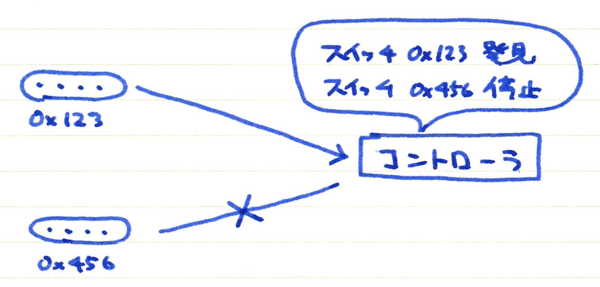 スイッチ 0x123 発見
スイッチ 0x456 停止
0x123
コントローラ
0x456